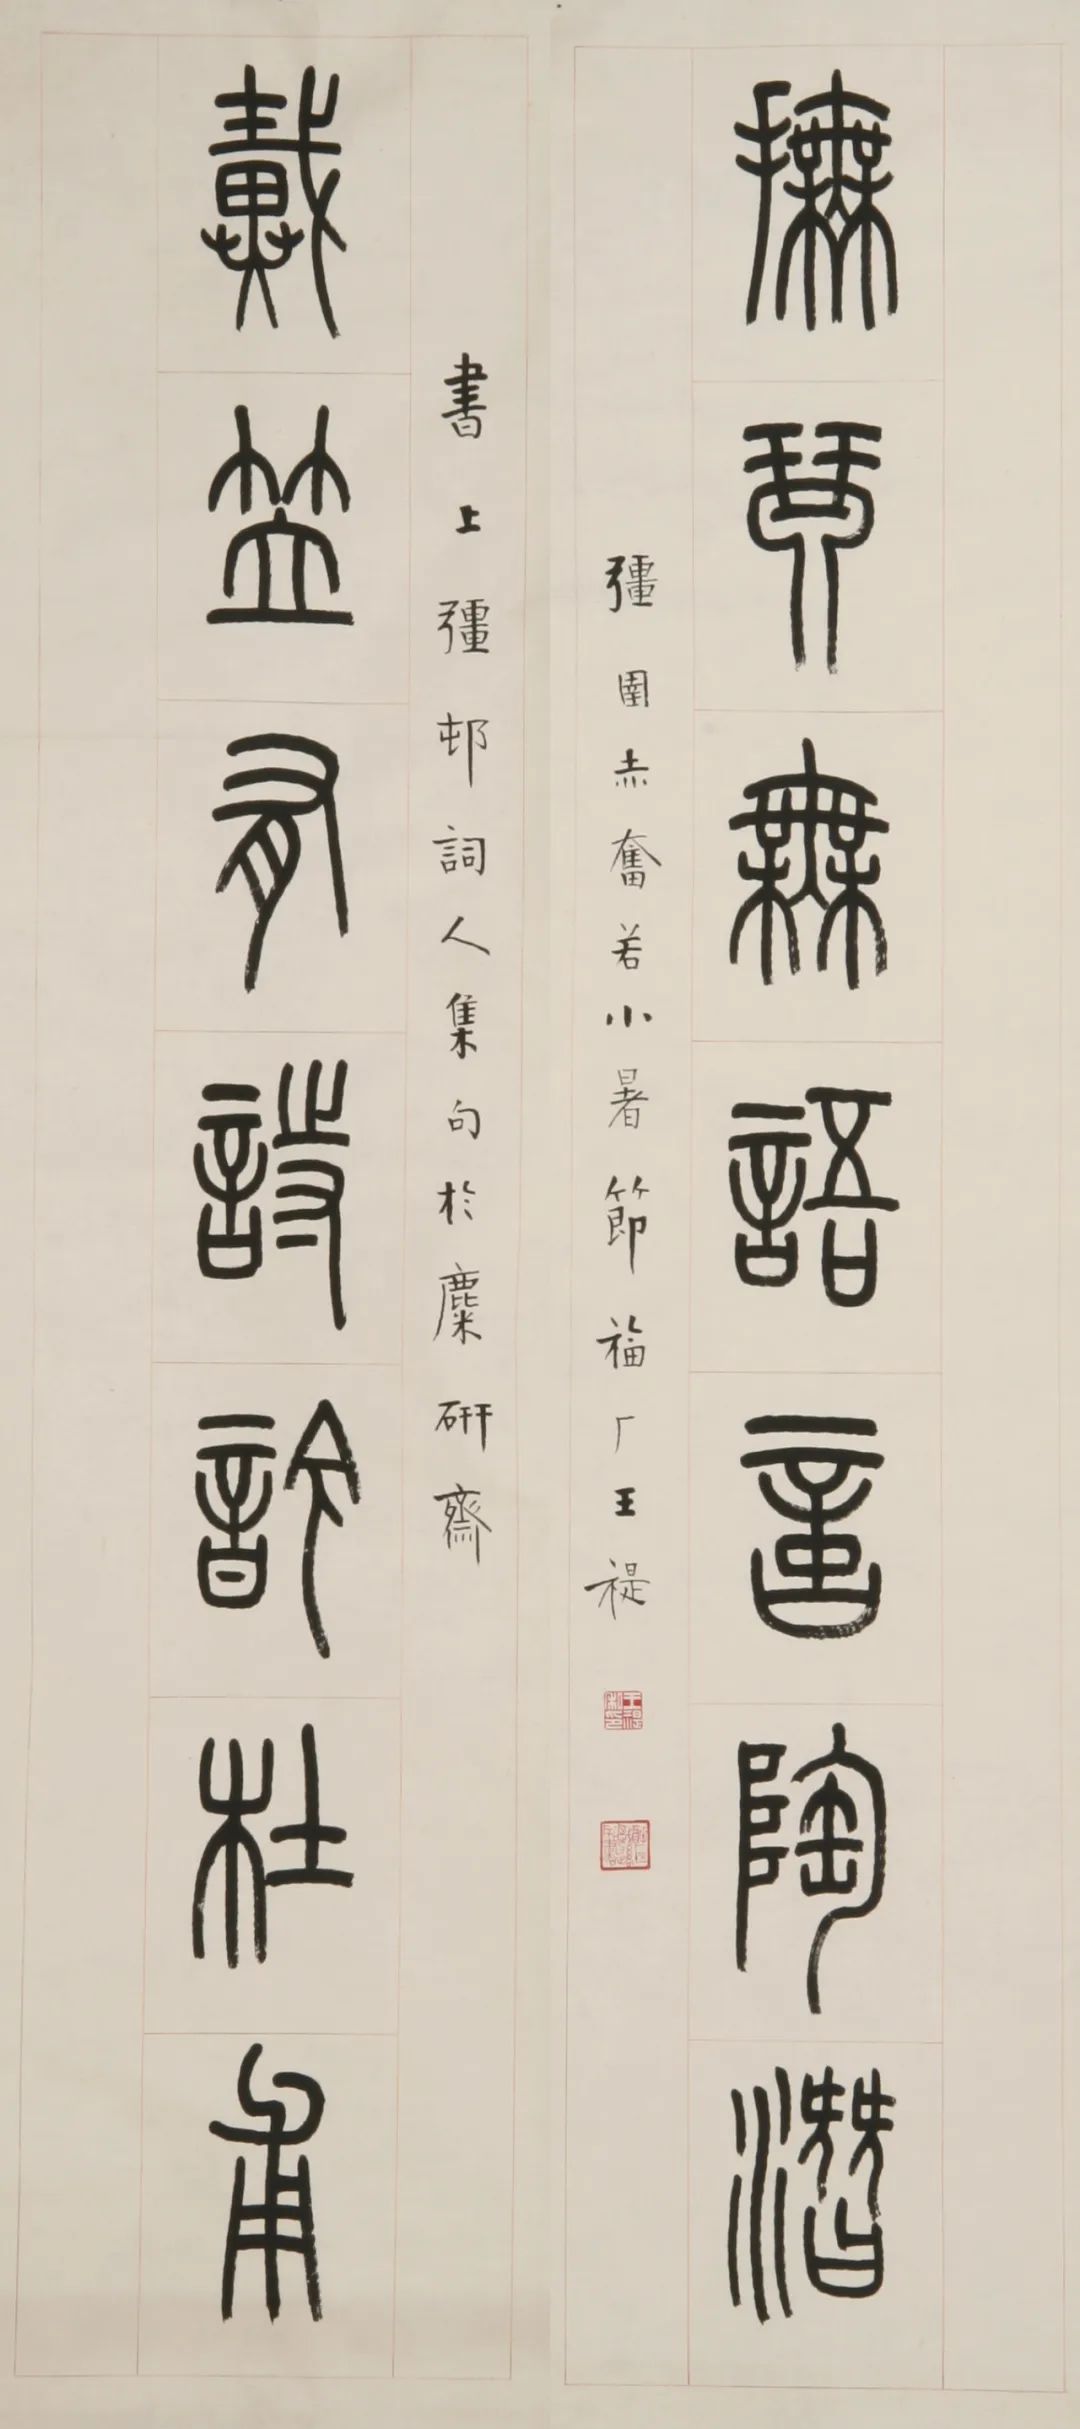 撫琴無語意陶潛
戴笠有詩訡杜甫
書上彊邨詞人集句於麋硏齋
彊圉赤奮若小暑節福厂王禔
王禔私印